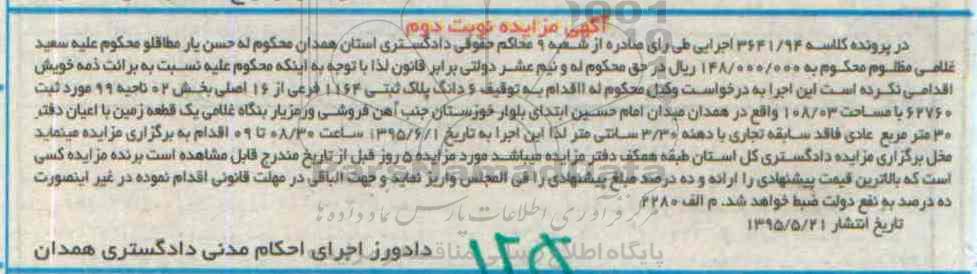 آگهی مزایده نوبت دوم
در پرونده کلاسه ۳۶۴۱/۹۴ اجرایی طی رای صادره از شعبه ۹ محاکم حقوقی دادگستری استان همدان محکوم له حسن یار مطاقلو محکوم علیه سعید
غلامی مظلوم محکوم به ۱۴۸/۰۰۰/۰۰۰ ریال در حق محکوم له و نیم عشر دولتی برابر قانون لذا با توجه به اینکه محکوم علیه نسبت به برائت ذمه خویش
اقدامی نکرده است این اجرا به درخواست وکیل محکوم له اقدام به توقیف ۶ دانگ پلاک ثبتی ۱۱۶۴ فرعی از ۱۶ اصلی بخش ۰۲ ناحیه ۹۹ مورد ثبت
۶۲۷۶۰ با مساحت ۱۰۸/۰۳ واقع در همدان میدان امام حسین ابتدای بلوار خوزستان جنب آهن فروشی ورمزیار بنگاه غلامی یک قطعه زمین با اعیان دفتر
۳۰ متر مربع عادی فاقد سابقه تجاری با دهنه ۳/۳۰ سانتی متر لذا این اجرا به تاریخ ۱۳۹۵/۶/۱ ساعت ۰۸/۳۰ تا ۰۹ اقدام به برگزاری مزایده مینماید
محل برگزاری مزایده دادگستری کل استان طبقه همکف دفتر مزایده میباشد مورد مزایده ۵ روز قبل از تاریخ مندرج قابل مشاهده است برنده مزایده کسی
است که بالاترین قیمت پیشنهادی را ارائه و ده درصد مبلغ پیشنهادی را فی المجلس واریز نماید و جهت الباقی در مهلت قانونی اقدام نموده در غیر اینصورت
ده درصد به نفع دولت ضبط خواهد شد. م الف ۲۲۸۰
تاریخ انتشار ۱۳۹۵/۵/۲۱
دادورز اجرای احکام مدنی دادگستری همدان